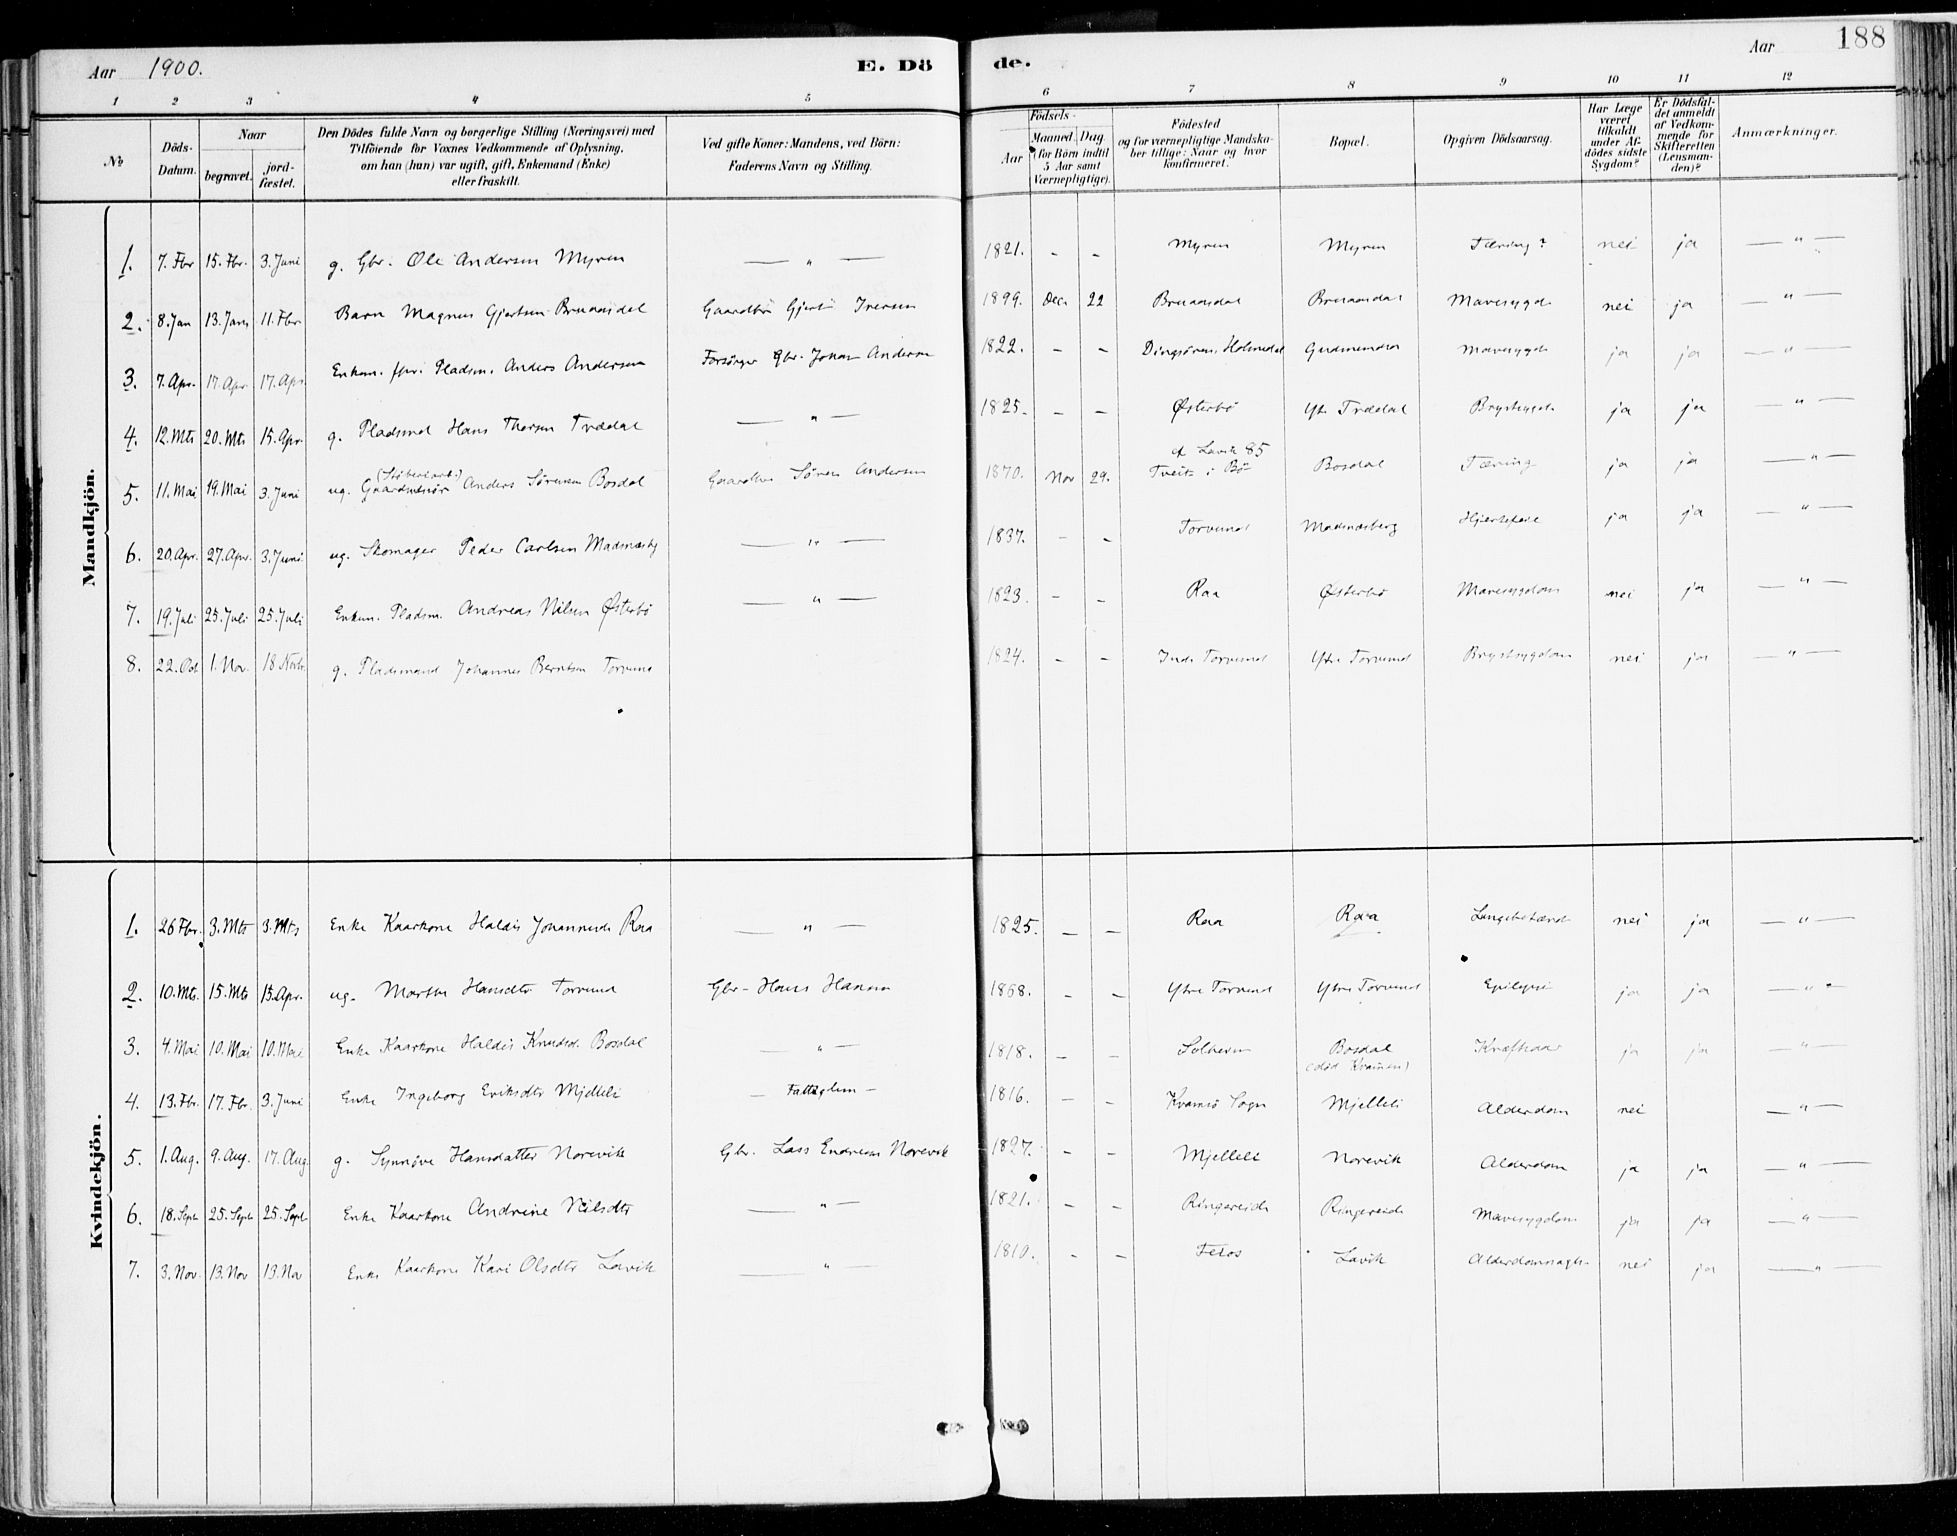 Aar 1900. E. Dö de. Aar 188
1 2 3 4 5 6 7 8 9 10 11 12
No Döds-Datum. Naar begravet. jordfæstet. Den Dödes fulde Navn og borgerlige Stilling (Næringsvei) med Tilföiende for Voxnes Vedkommende af Oplysning, om han (hun) var ugift, gift, Enkemand (Enke) eller fraskilt. Ved gifte Koner: Mandens, ved Börn: Faderens Navn og Stilling. Födsels- Aar Maaned. Dag (for Börn indtil 5 Aar samt Værnepligtige). Födested og for værnepligtige Mandskaber tillige: Naar og hvor konfirmeret. Bopæl. Opgiven Dödsaarsag. Har Læge været tilkaldt under Afdödes sidste Sygdom? Er Dödsfaldet anmeldt af Vedkommende for Skifteretten (Lensmanden)? Anmærkninger.
Mandkjön.
1. 7. Fbr 15. Fbr. 3. Juni g. Gbr. Ole Andersen Myren — " — 1821. - - Myren Myren Tæring? nei ja — " —
2. 8. Jan 13. Jan 11. Fbr Barn Magnus Gjertsen Bruaasdal Gaardbr Gjert Iversen 1899. Dec. 22 Bruaasdal Bruaasdal Mavesygd. nei ja — " —
3. 7. Apr. 17 Apr. 17. Apr. Enkem. Pladsm. Anders Andersen Forsörger Gbr. Johan Andersen 1822. - - Holmedal Mavesygd ja ja — " —
4. 12. Mts 20. Mts 15. Apr. g. Pladsmd Hans Thorsen Trædal — " — 1825. - - Østerbö Ytre Trædal Brystsygd. ja ja — " —
5. 11. Mai 19. Mai 3. Juni ug. Anders Sörensen Bosdal Gaardbr Sören Andersen 1870. Nov 29. Tveit i Bö Lavik 85 Bosdal Tæring ja ja — " —
6. 20. Apr. 27. Apr. 3. Juni. ug. Skomager Peder Carlsen — " — 1837. - - Torvund Hjertefeil ja ja — " —
7. 19. Juli 25. Juli 25. Juli Enkem. Pladsm. Andreas Nilsen Østerbö — " — 1823. - - Raa Østerbö Mavesygdom nei ja — " —
8. 22. Oct 1. Nov. 18 Novbr. g. Pladsmand Johannes Berntsen Torvund 1824. - - Indr Torvund Ytre Torvund Brystsygdom nei ja — " —
Kvindekjön.
1. 26 Fbr. 3. Mts 3. Mts Enke Kaarkone Haldis Johannesd. Raa — " — 1825. - - Raa Raa nei ja — " —
2. 10. Mts. 15. Mts 15. Apr. ug. Marthe Hansdtr Torvund Gbr. Hans Hansen 1868. - - Ytre Torvund Ytre Torvund Epilepsi ja ja — " —
3. 4. Mai 10. Mai 10. Mai Enke Kaarkone Haldis Knudsd. Bosdal — " — 1818. - - Solheim Bosdal (död Kvamen) ja ja — " —
4. 13. Fbr. 17. Fbr. 3. Juni Enke Ingeborg Eriksdtr Mjelleli — Fattiglem — 1816. - - Kvamsö Sogn Mjelleli Alderdom nei — " —
5. 1. Aug. 9. Aug. 17. Aug. g. Synnöve Hansdatter Norevik Gbr. Lass Endresen Norevik 1827. - - Mjelleli Norevik Alderdom ja ja — " —
6. 18. Sept 25. Sept 25. Sept Enke Kaarkone Andrine Nilsdtr — " — 1821. - - Ringereide Ringereide Mavesygdom ja ja — " —
7. 3. Nov. 13. Nov 13. Nov Enke Kaarkone Kari Olsdtr Lavik — " — 1810. - - Lavik nei ja — " —